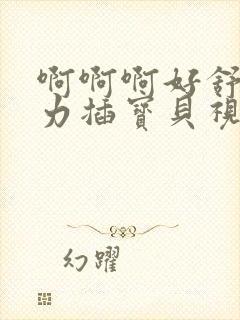 啊啊啊好舒
力插寶貝視
幻躍